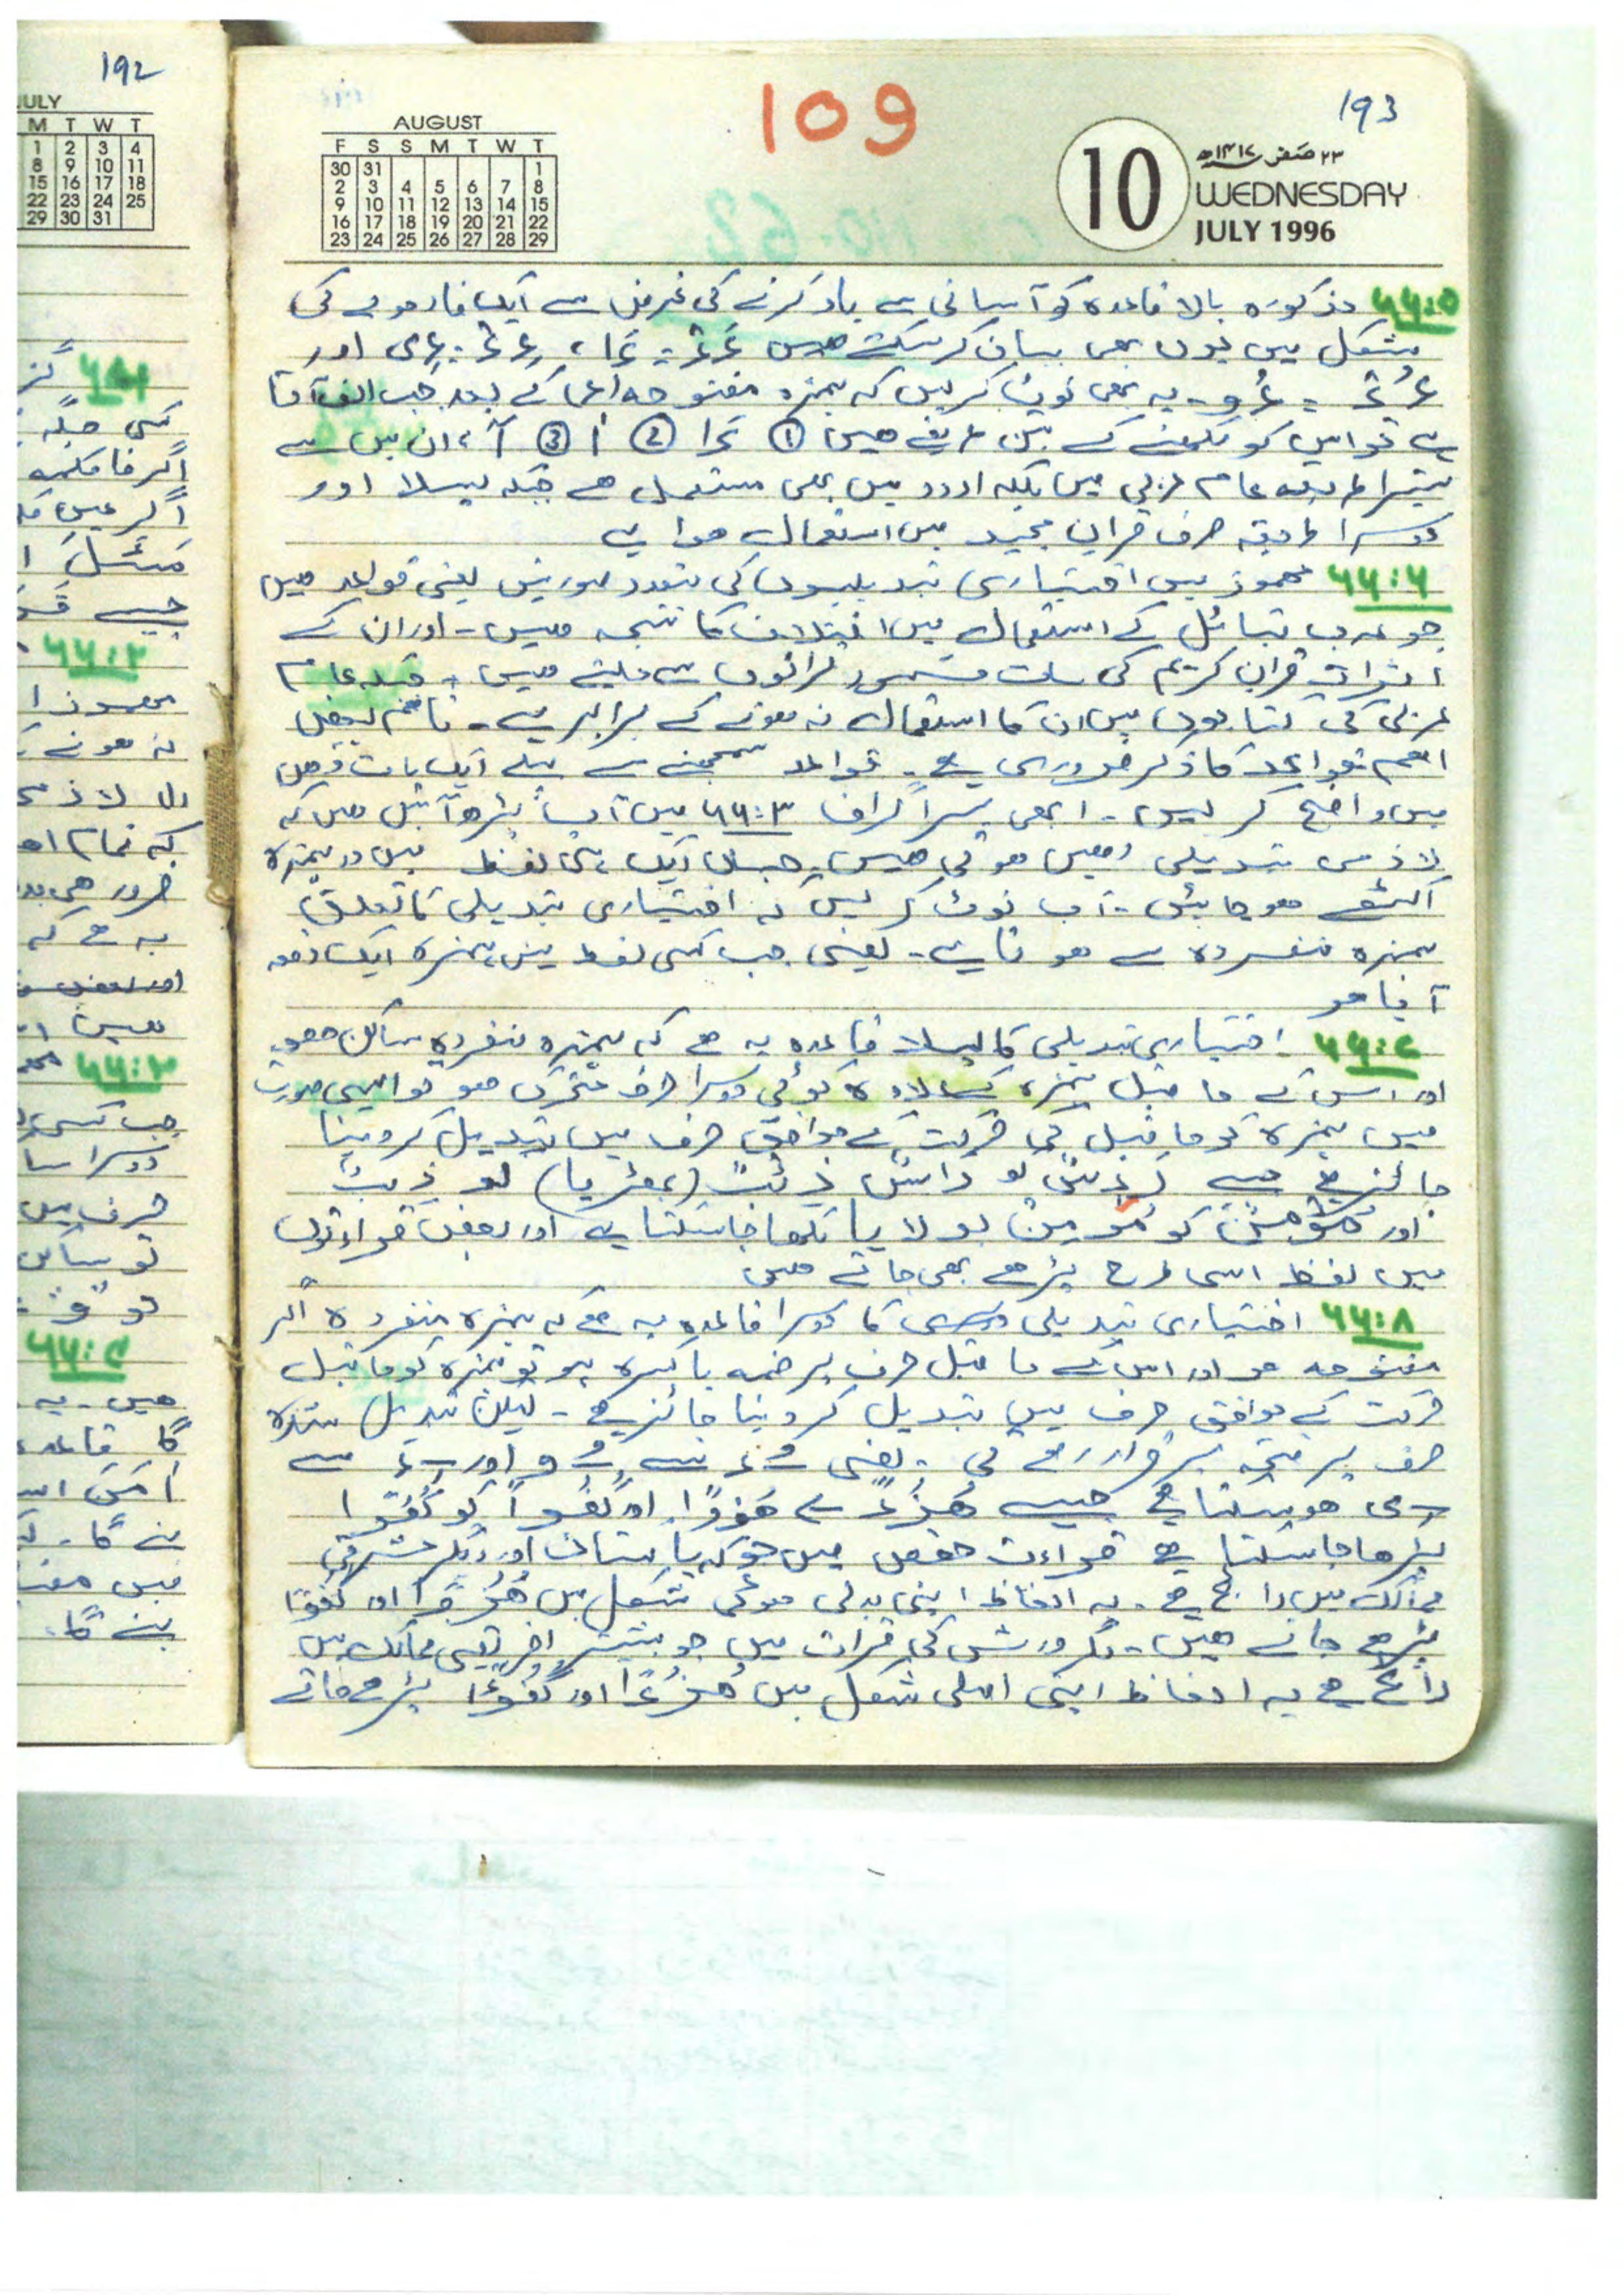 192
JULY
M T W T
1 2 3 4
8 9 10 11
15 16 17 18
22 23 24 25
29 30 31
کسی جگہ
اگر فا کلمہ
اگر عین
جیسے
۶۶:۲
نہ ہونے
کہ تمام
ضرور ہی
یہ ہے کہ
۶۶:۳
جب کسی
دوسرا سا
حرف میں
تو ساکن
تو و
۶۶:۴
ہیں۔ یہ
گا قاعدہ
بنے گا۔
میں
بنے گا۔
109
193
AUGUST
F S S M T W T
30 31 1
2 3 4 5 6 7 8
9 10 11 12 13 14 15
16 17 18 19 20 21 22
23 24 25 26 27 28 29
10
۲۳ صفر ۱۴۱۷ھ
WEDNESDAY
JULY 1996
۶۶:۵ مذکورہ بالا قاعدہ کو آسانی سے یاد کرنے کی غرض سے ایک فارمولے کی
شکل میں یوں بھی بیان کر سکتے ہیں ءَءْ = ءَا، ءِءْ = ءِی اور
ءُءْ = ءُو۔ یہ بھی نوٹ کر لیں کہ ہمزہ مفتوحہ کے بعد جب الف آتا
ہے تو اس کو لکھنے کے تین طریقے ہیں ① ءَا ② أ ③ آ، ان میں سے
تیسرا طریقہ عام عربی میں بلکہ اردو میں بھی مستعمل ہے جبکہ پہلا اور
دوسرا طریقہ صرف قرآن مجید میں استعمال ہوا ہے
۶۶:۶ مہموز میں اختیاری تبدیلیوں کی متعدد صورتیں یعنی قواعد ہیں
جو عرب قبائل کے استعمال میں اختلاف کا نتیجہ ہیں۔ اور ان کے
اثرات قرآن کریم کی سات مشہور قرائتوں سے ملتے ہیں۔ جبکہ عام
عربی کی کتابوں میں ان کا استعمال نہ ہونے کے برابر ہے۔ تاہم بعض
اہم قواعد کا ذکر ضروری ہے۔ قواعد سمجھنے سے پہلے ایک بات ذہن
میں واضح کر لیں۔ ابھی پیراگراف ۶۶:۳ میں آپ پڑھ آئے ہیں کہ
لازمی تبدیلی وہیں ہوتی ہیں۔ جہاں ایک ہی لفظ میں دو ہمزہ
اکٹھے ہو جائیں۔ آپ نوٹ کر لیں کہ اختیاری تبدیلی کا تعلق
ہمزہ منفردہ سے ہوتا ہے۔ یعنی جب کسی لفظ میں ہمزہ ایک دفعہ
آیا ہو
۶۶:۷ اختیاری تبدیلی کا پہلا قاعدہ یہ ہے کہ ہمزہ منفردہ ساکن ہو
اور اس کے ما قبل ہمزہ کے علاوہ کوئی دوسرا حرف متحرک ہو تو ایسی صورت
میں ہمزہ کو ما قبل کی حرکت کے موافق حرف میں تبدیل کر دینا
جائز ہے جیسے رَءْسٌ کو رَاسٌ ذِئْبٌ (بھیڑیا) کو ذِیبٌ
اور مُؤْمِنٌ کو مُومِنٌ بولا یا لکھا جا سکتا ہے اور بعض قراءتوں
میں لفظ اسی طرح پڑھے بھی جاتے ہیں
۶۶:۸ اختیاری تبدیلی کا دوسرا قاعدہ یہ ہے کہ ہمزہ منفردہ اگر
مفتوحہ ہو اور اس کے ما قبل حرف پر ضمہ یا کسرہ ہو تو ہمزہ کو ما قبل
حرکت کے موافق حرف میں تبدیل کر دینا جائز ہے۔ لیکن تبدیل شدہ
حرف پر فتحہ برقرار رہے گی۔ یعنی ـُ ءَ سے ـُ وَ اور ـِ ءَ سے
ـِ یَ ہو سکتا ہے جیسے هُزُءًا سے هُزُوًا اور كُفُءًا کو كُفُوًا
پڑھا جا سکتا ہے قراءت حفص میں جو کہ پاکستان اور دیگر مشرقی
ممالک میں رائج ہے۔ یہ الفاظ اپنی بدلی ہوئی شکل میں هُزُوًا اور كُفُوًا
پڑھے جاتے ہیں۔ مگر ورش کی قرات میں جو بیشتر افریقی ممالک میں
رائج ہے یہ الفاظ اپنی اصلی شکل میں هُزُءًا اور كُفُءًا پڑھے جاتے